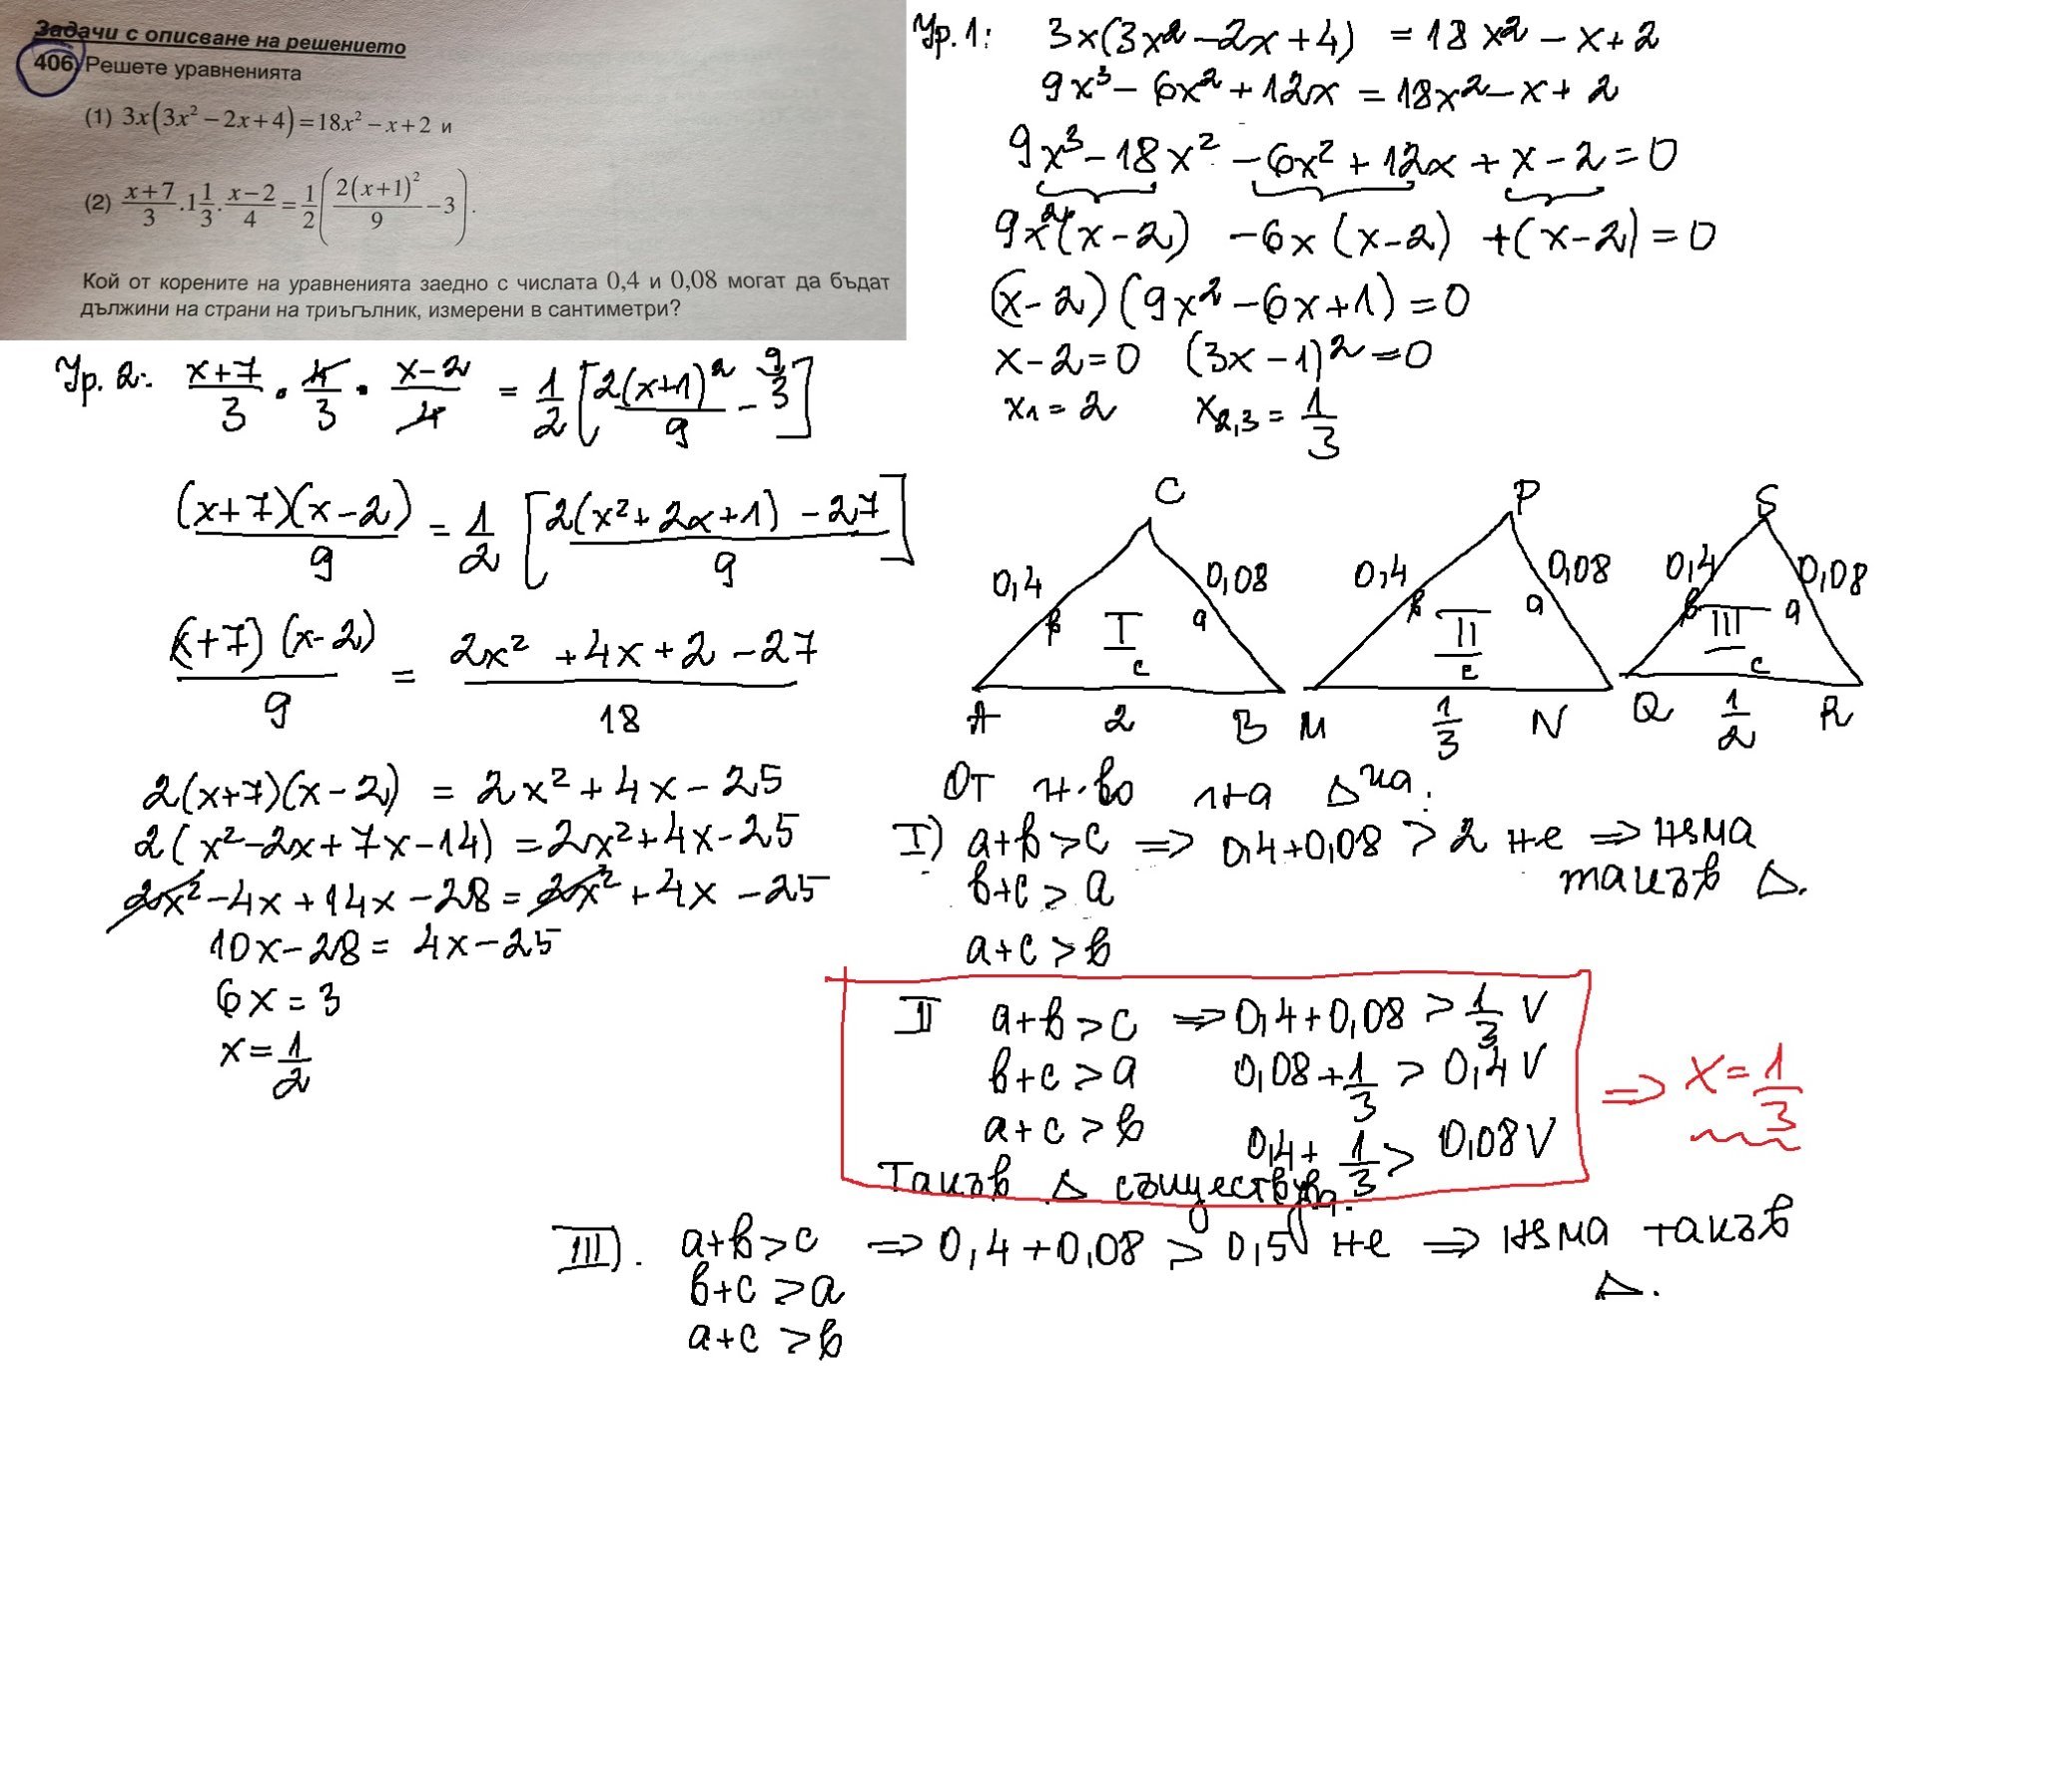 Задачи с описване на решението
406. Решете уравненията
(1) 3x(3x² − 2x + 4) = 18x² − x + 2 и
(2) (x+7)/3 . 1 1/3 . (x−2)/4 = 1/2 (2(x+1)²/9 − 3).
Кой от корените на уравненията заедно с числата 0,4 и 0,08 могат да бъдат
дължини на страни на триъгълник, измерени в сантиметри?
Ур.1: 3x(3x² − 2x + 4) = 18x² − x + 2
9x³ − 6x² + 12x = 18x² − x + 2
9x³ − 18x² − 6x² + 12x + x − 2 = 0
9x²(x−2) − 6x(x−2) + (x−2) = 0
(x−2)(9x² − 6x + 1) = 0
x−2=0 (3x−1)² = 0
x₁ = 2 x₂,₃ = 1/3
Ур. 2: (x+7)/3 . 4/3 . (x−2)/4 = 1/2 [2(x+1)²/9 − 9/3]
(x+7)(x−2)/9 = 1/2 [(2(x²+2x+1) − 27)/9]
(x+7)(x−2)/9 = (2x² + 4x + 2 − 27)/18
2(x+7)(x−2) = 2x² + 4x − 25
2(x² − 2x + 7x − 14) = 2x² + 4x − 25
2x² − 4x + 14x − 28 = 2x² + 4x − 25
10x − 28 = 4x − 25
6x = 3
x = 1/2
C
0,4 0,08
в I a
c
A 2 B
P
0,4 0,08
в II a
c
M 1/3 N
S
0,4 0,08
в III a
c
Q 1/2 R
От н-во на Δка:
I) a+в>c => 0,4+0,08 > 2 не => няма
такъв Δ.
в+c > a
a+c > в
II a+в>c => 0,4+0,08 > 1/3 V
в+c > a 0,08+1/3 > 0,4 V
a+c > в 0,4+1/3 > 0,08 V
Такъв Δ съществува.
=> x = 1/3
III). a+в>c => 0,4+0,08 > 0,5 не => няма такъв
Δ.
в+c > a
a+c > в